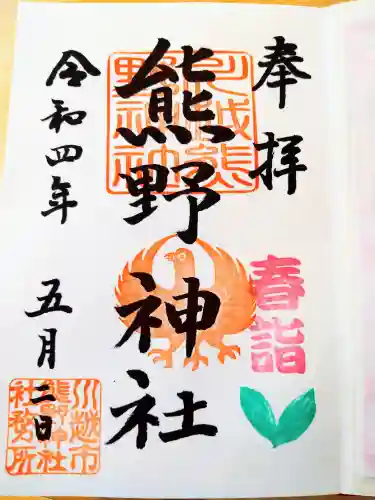 奉拝
春詣
川越熊
野神社
熊野神社
令和四年
五月二日
川越市
熊野神社
社務所